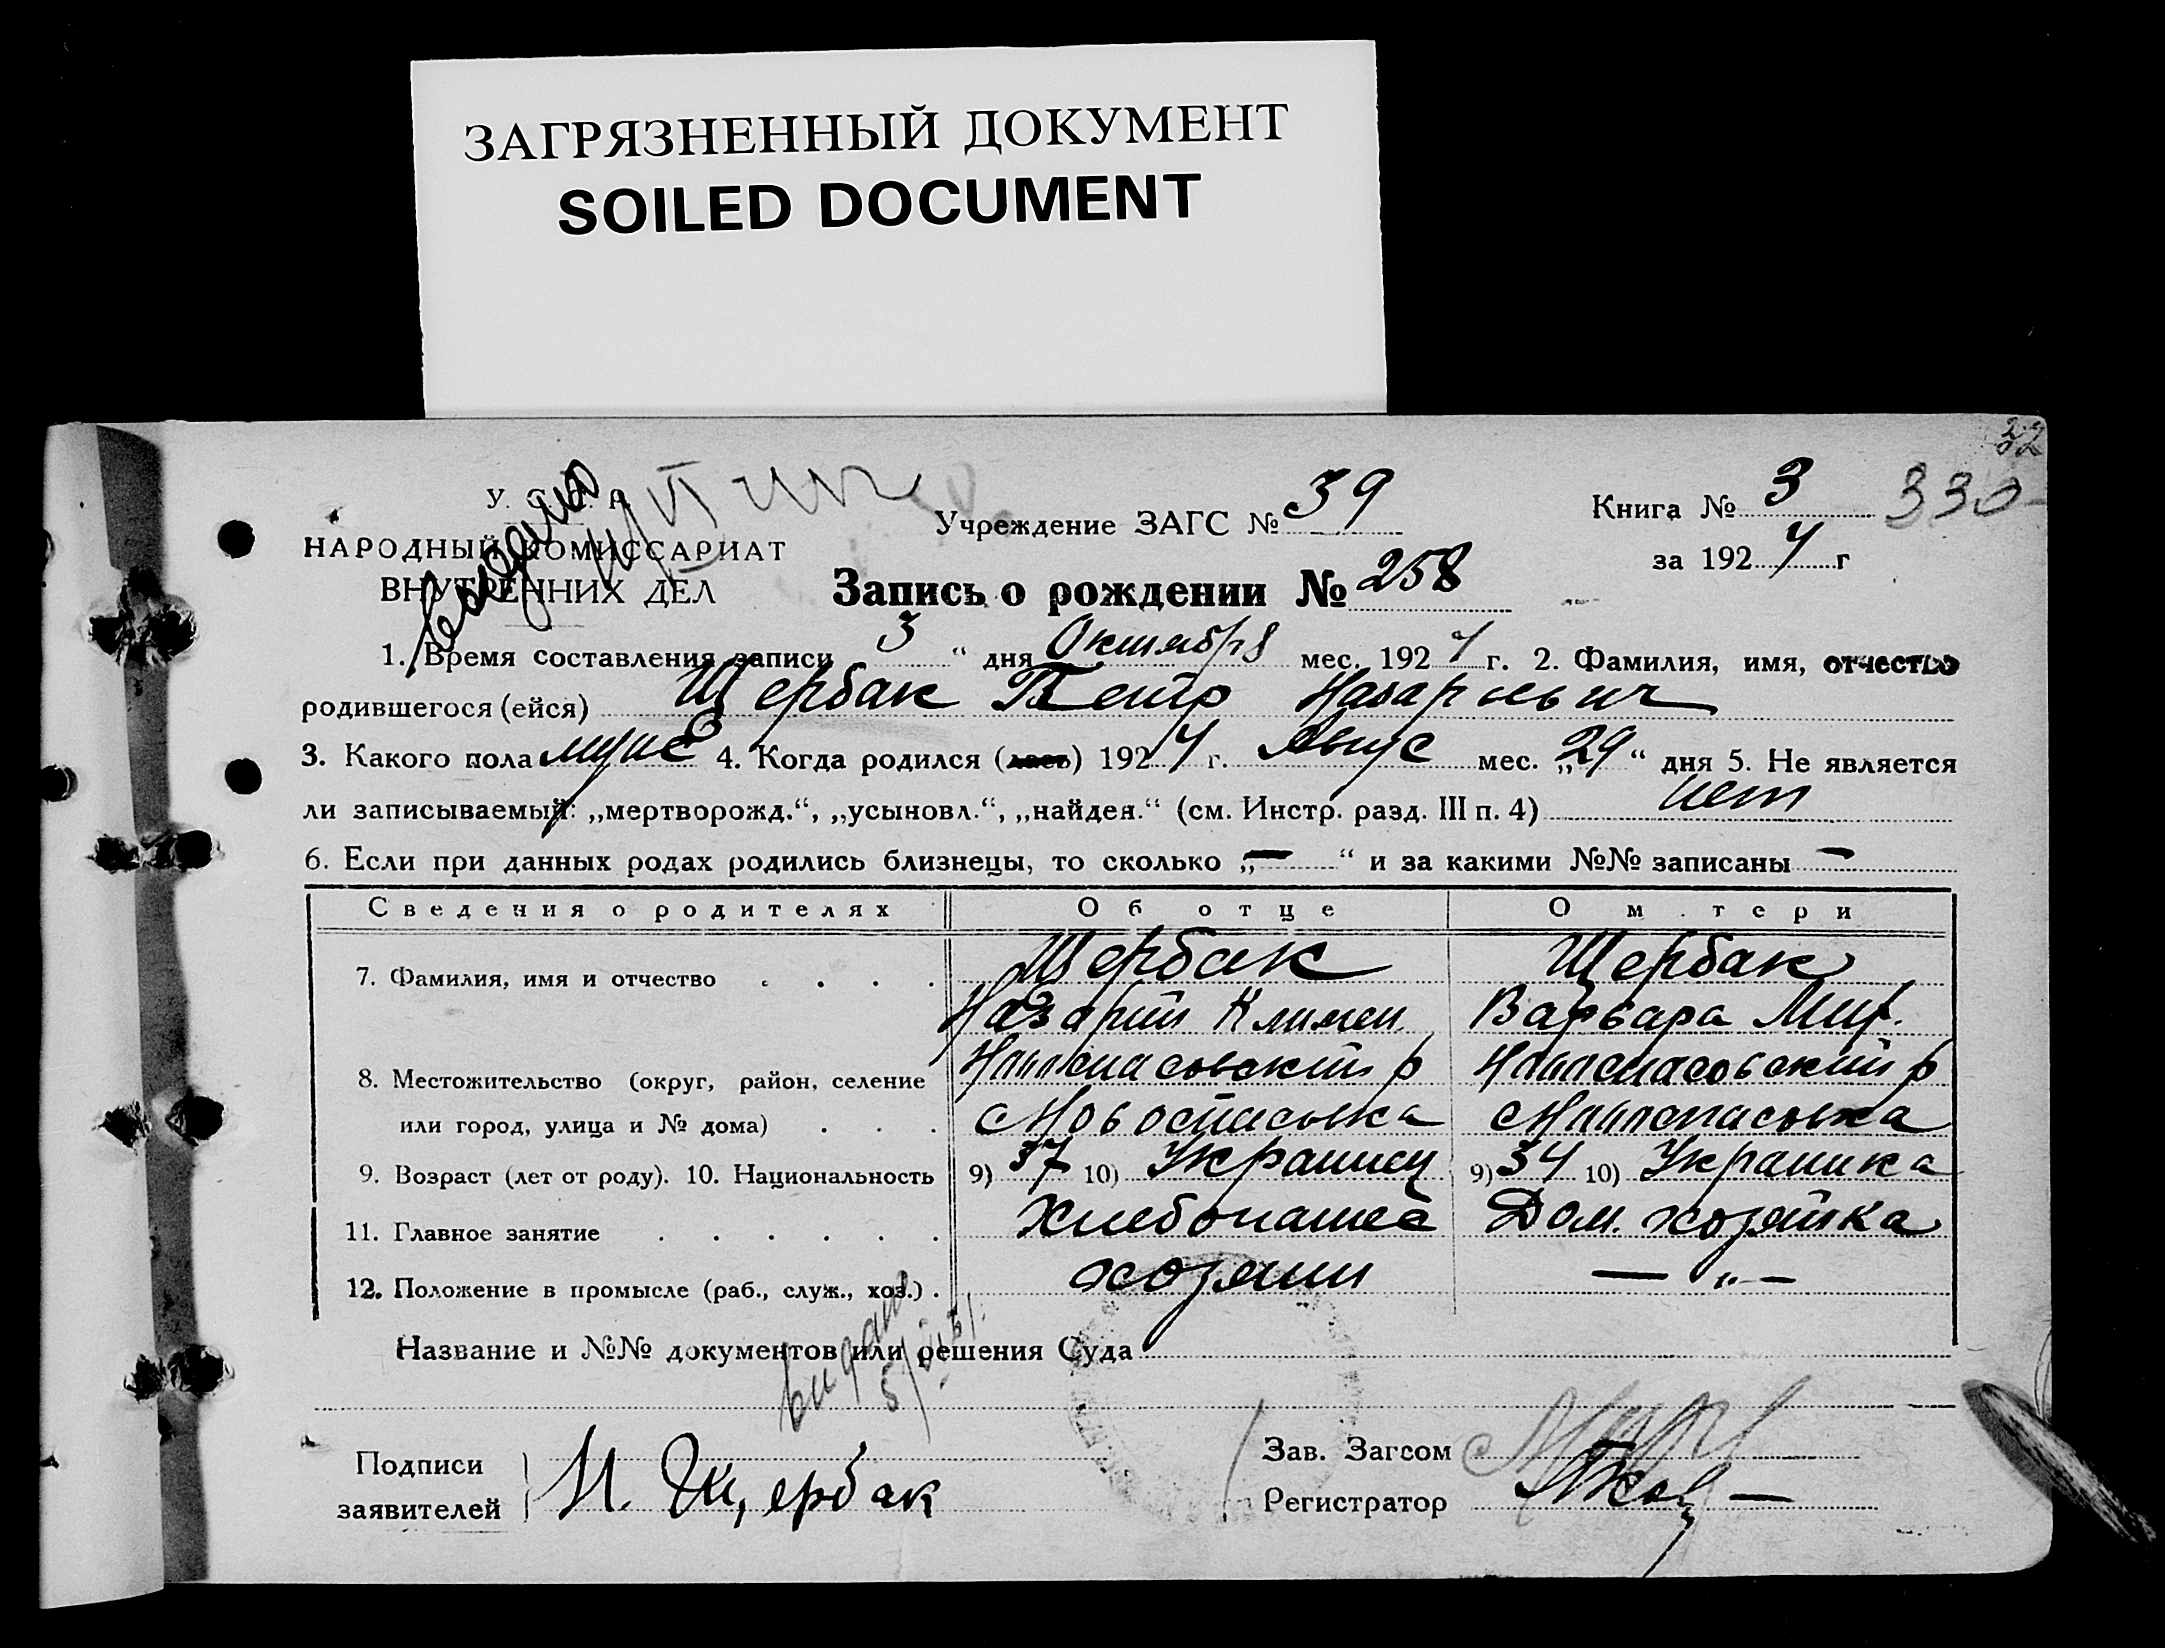 ЗАГРЯЗНЕННЫЙ ДОКУМЕНТ
SOILED DOCUMENT
32
У. С. С. Р.
НАРОДНЫЙ КОМИССАРИАТ
ВНУТРЕННИХ ДЕЛ
Учреждение ЗАГС № 39
Книга № 3 330
за 1924 г
Запись о рождении № 258
1. Время составления записи 3 “ дня Октября мес. 1924 г. 2. Фамилия, имя, отчество
родившегося (ейся) Щербак Петр Назарьевич
3. Какого пола муж 4. Когда родился (лась) 1924 г. Авгус мес. „29“ дня 5. Не является
ли записываемый: „мертворожд.“, „усыновл.“, „найден.“ (см. Инстр. разд. III п. 4) нет
6. Если при данных родах родились близнецы, то сколько „—“ и за какими №№ записаны —
Сведения о родителях Об отце О м.тери
7. Фамилия, имя и отчество . . . . Щербак Щербак
Назарий Климен. Варвара Мир.
8. Местожительство (округ, район, селение
или город, улица и № дома) . . . с Новоспасовка
9. Возраст (лет от роду). 10. Национальность 9) 37 10) Украинец 9) 34 10) Украинка
11. Главное занятие . . . . . . Хлебопашес Дом. хозяйка
12. Положение в промысле (раб., служ., хоз.) . хозяин — „ —
Название и №№ документов или решения Суда
видано
Подписи
заявителей
Н. Щербак
Зав. Загсом
Регистратор